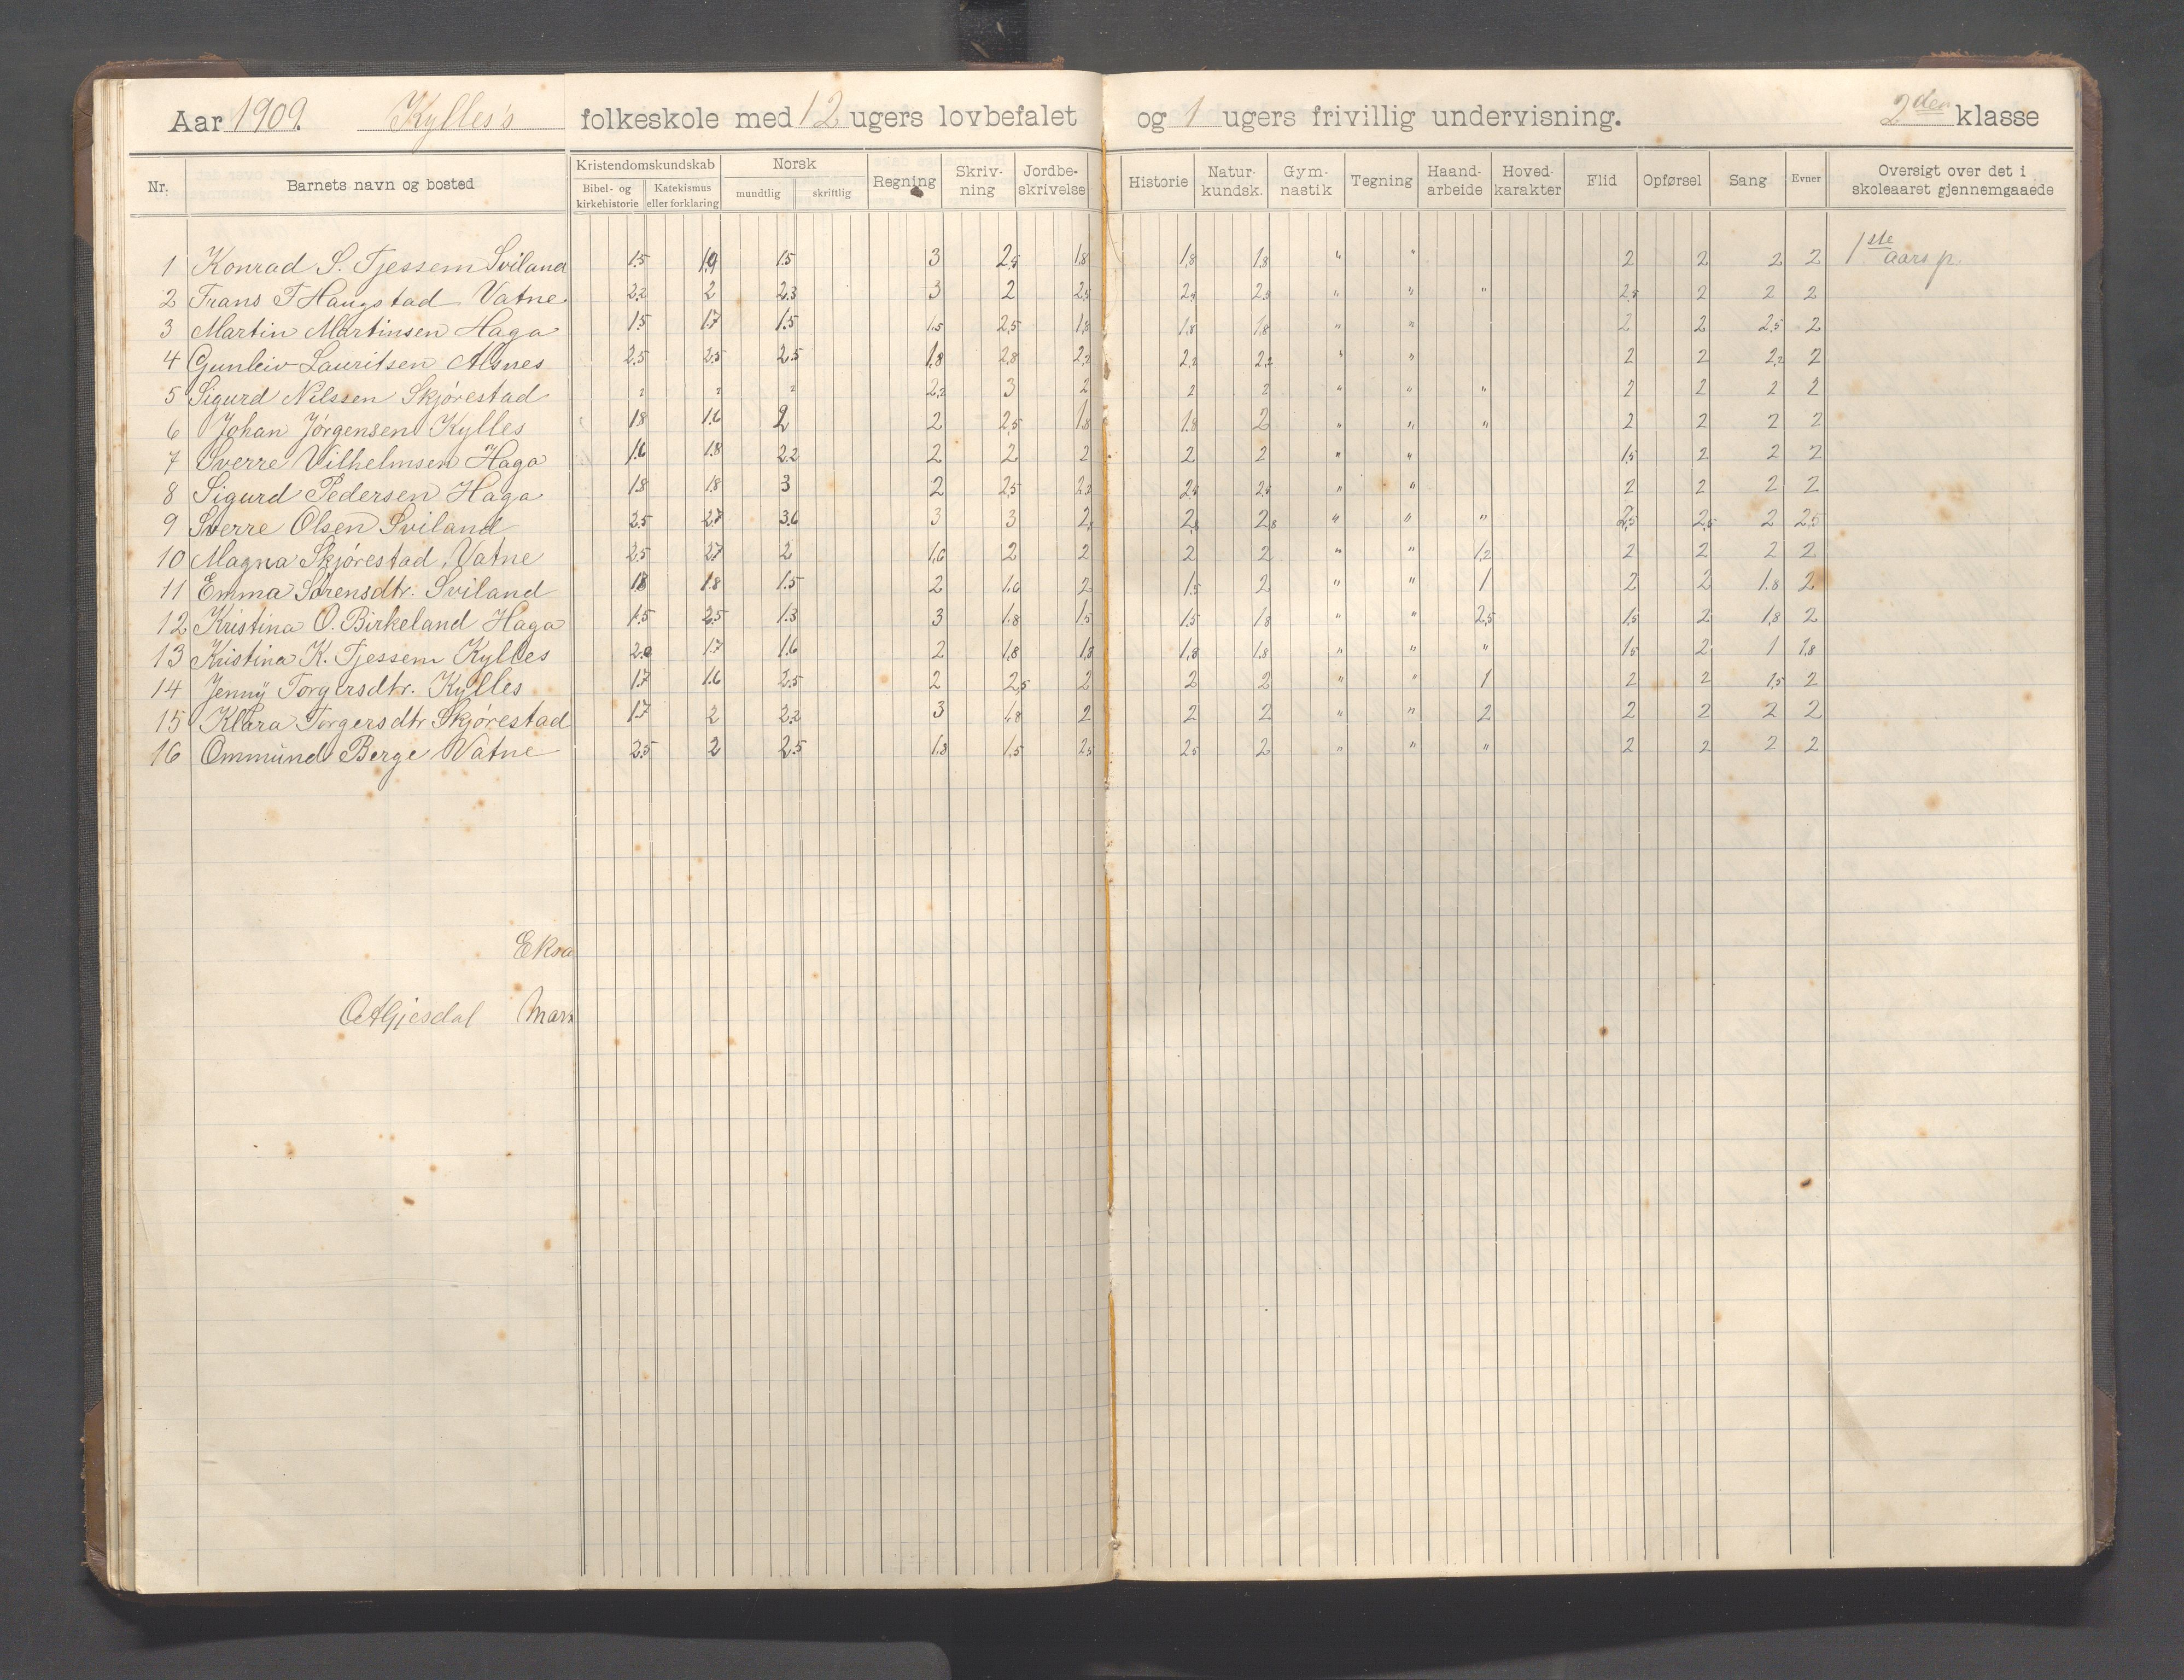 Aar 1909. Kylles's folkeskole med 12 ugers lovbefalet og 1 ugers frivillig undervisning. 2den klasse
Nr. Barnets navn og bosted Kristendomskundskab Bibel- og kirkehistorie Katekismus eller forklaring Norsk mundtlig skriftlig Regning Skriv-ning Jordbe-skrivelse Historie Natur-kundsk. Gym-nastik Tegning Haand-arbeide Hoved-karakter Flid Opførsel Sang Evner Oversigt over det i skoleaaret gjennemgaaede
1 Konrad S. Tjessem Sviland 1.5 1.9 1.5 3 2,5 1,8 1,8 1,8 " " 2 2 2 2 1ste aars p.
2 Frans T Haugstad Vatne 2.2 2 2.3 3 2 2,5 2,5 2,5 " " " 2,5 2 2 2
3 Martin Martinsen Haga 1.5 1.7 1.5 1,5 2,5 1,8 1,8 1,8 " " 2 2 2,5 2
4 Gunleiv Lauritsen Alsnes 2.5 2.5 2.5 1,8 2,8 2,2 2,2 2,2 " " 2 2 2,2 2
5 Sigurd Nilssen Skjørestad 2 2 2 2,2 3 2 2 2 " " " 2 2 2 2
6 Johan Jørgensen Kylles 1.8 1.6 2 2 2,5 1,8 1,8 2 " " " 2 2 2 2
7 Sverre Vilhelmsen Haga 1.6 1.8 2.2 2 2 2 2 2 " " 1,5 2 2 2
8 Sigurd Pedersen Haga 1.8 1.8 3 2 2,5 2,2 2,5 2,5 " " 2 2 2 2
9 Sverre Olsen Sviland 2.5 2.7 3.6 3 3 2,8 2,8 2,8 " " " 2,5 2,5 2 2,5
10 Magna Skjørestad, Vatne 2.5 2.7 2 1,6 2 2 2 2 " " 1,2 2 2 2 2
11 Emma Sørensdtr. Sviland 1.8 1.8 1.5 2 1,6 2 1,5 2 " " 1 2 2 1.8 2
12 Kristina O. Birkeland Haga 1.5 2.5 1.3 3 1.8 1,5 1,5 1,8 " " 2,5 1,5 2 1,8 2
13 Kristina K. Tjessem Kylles 2.0 1.7 1.6 2 1,8 1,8 1,8 1,8 " " " 1,5 2 1 1,8
14 Jenny Torgersdtr. Kylles 1.7 1.6 2.5 2 2,5 2 2 2 " " 1 2 2 1,5 2
15 Klara Torgersdtr Skjørestad 1.7 2 2.2 3 1,8 2 2 2 " " 2 2 2 2 2
16 Ommund Berge Vatne 2.5 2 2.5 1,8 1,5 2,5 2,5 2 " " " 2 2 2 2
Eksa
Gjesdal Mars